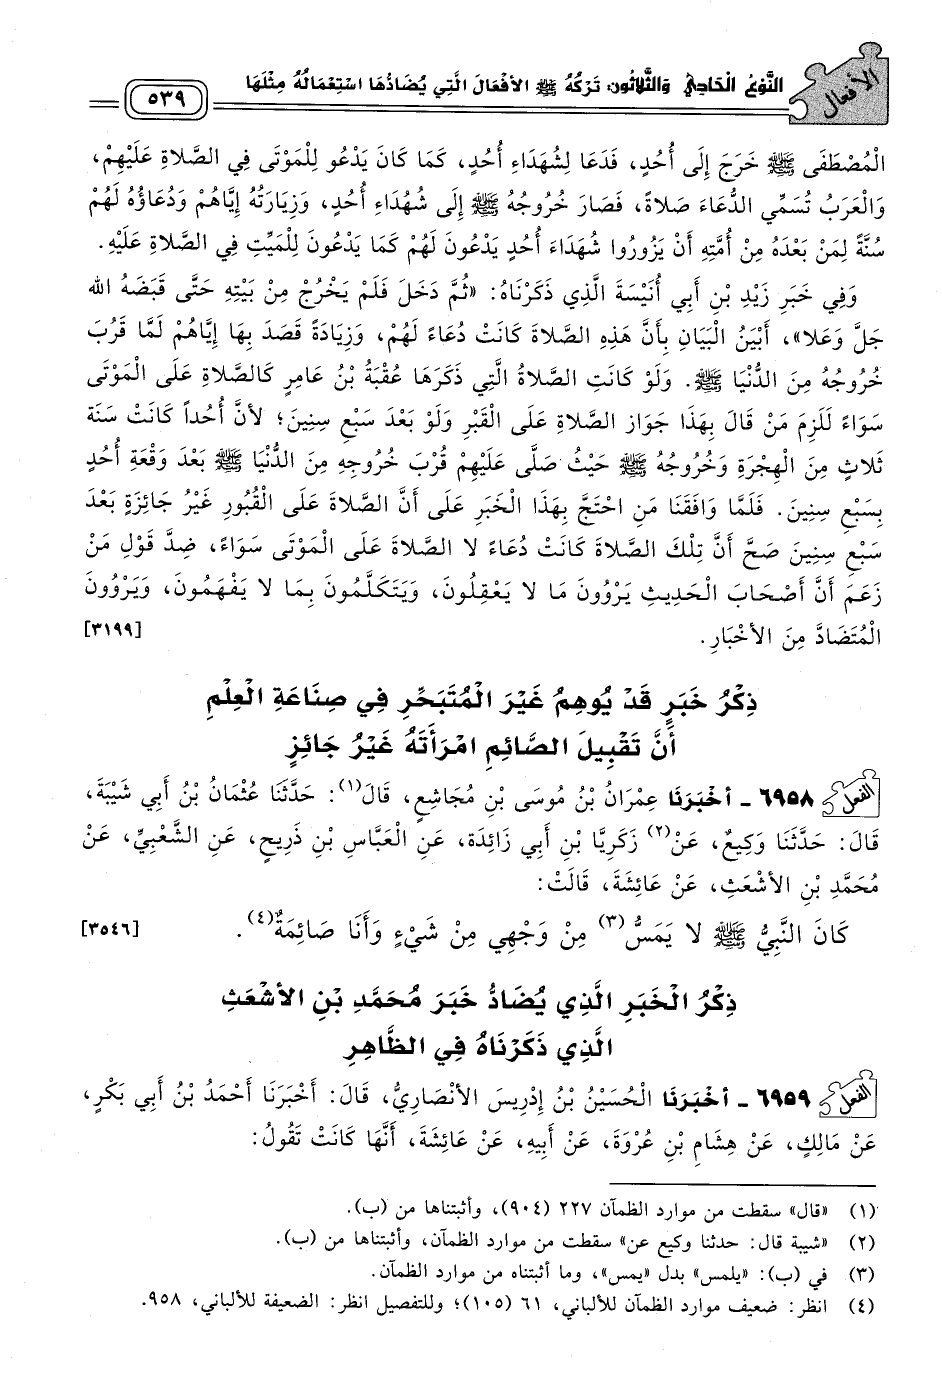 الأفعال
النَّوْعُ الْحَادِي وَالثَّلَاثُون: تَرْكُهُ ﷺ الأَفْعَالَ الَّتِي يُضَادُّهَا اسْتِعْمَالُهُ مِثْلَهَا
٥٣٩
الْمُصْطَفَى ﷺ خَرَجَ إِلَى أُحُدٍ، فَدَعَا لِشُهَدَاءِ أُحُدٍ، كَمَا كَانَ يَدْعُو لِلْمَوْتَى فِي الصَّلاةِ عَلَيْهِمْ،
وَالْعَرَبُ تُسَمِّي الدُّعَاءَ صَلاةً، فَصَارَ خُرُوجُهُ ﷺ إِلَى شُهَدَاءِ أُحُدٍ، وَزِيَارَتُهُ إِيَّاهُمْ وَدُعَاؤُهُ لَهُمْ
سُنَّةً لِمَنْ بَعْدَهُ مِنْ أُمَّتِهِ أَنْ يَزُورُوا شُهَدَاءَ أُحُدٍ يَدْعُونَ لَهُمْ كَمَا يَدْعُونَ لِلْمَيِّتِ فِي الصَّلاةِ عَلَيْهِ.
وَفِي خَبَرِ زَيْدِ بْنِ أَبِي أُنَيْسَةَ الَّذِي ذَكَرْنَاهُ: «ثُمَّ دَخَلَ فَلَمْ يَخْرُجْ مِنْ بَيْتِهِ حَتَّى قَبَضَهُ الله
جَلَّ وَعَلا»، أَبْيَنُ الْبَيَانِ بِأَنَّ هَذِهِ الصَّلاةَ كَانَتْ دُعَاءً لَهُمْ، وَزِيَادَةً قَصَدَ بِهَا إِيَّاهُمْ لَمَّا قَرُبَ
خُرُوجُهُ مِنَ الدُّنْيَا ﷺ. وَلَوْ كَانَتِ الصَّلاةُ الَّتِي ذَكَرَهَا عُقْبَةُ بْنُ عَامِرٍ كَالصَّلاةِ عَلَى الْمَوْتَى
سَوَاءً لَلَزِمَ مَنْ قَالَ بِهَذَا جَوَازُ الصَّلاةِ عَلَى الْقَبْرِ وَلَوْ بَعْدَ سَبْعِ سِنِينَ؛ لأَنَّ أُحُداً كَانَتْ سَنَةَ
ثَلاثٍ مِنَ الْهِجْرَةِ وَخُرُوجُهُ ﷺ حَيْثُ صَلَّى عَلَيْهِمْ قُرْبَ خُرُوجِهِ مِنَ الدُّنْيَا ﷺ بَعْدَ وَقْعَةِ أُحُدٍ
بِسَبْعِ سِنِينَ. فَلَمَّا وَافَقَنَا مَنِ احْتَجَّ بِهَذَا الْخَبَرِ عَلَى أَنَّ الصَّلاةَ عَلَى الْقُبُورِ غَيْرُ جَائِزَةٍ بَعْدَ
سَبْعِ سِنِينَ صَحَّ أَنَّ تِلْكَ الصَّلاةَ كَانَتْ دُعَاءً لا الصَّلاةَ عَلَى الْمَوْتَى سَوَاءً، ضِدَّ قَوْلِ مَنْ
زَعَمَ أَنَّ أَصْحَابَ الْحَدِيثِ يَرْوُونَ مَا لا يَعْقِلُونَ، وَيَتَكَلَّمُونَ بِمَا لا يَفْهَمُونَ، وَيَرْوُونَ
الْمُتَضَادَّ مِنَ الأَخْبَارِ. [٣١٩٩]
ذِكْرُ خَبَرٍ قَدْ يُوهِمُ غَيْرَ الْمُتَبَحِّرِ فِي صِنَاعَةِ الْعِلْمِ
أَنَّ تَقْبِيلَ الصَّائِمِ امْرَأَتَهُ غَيْرُ جَائِزٍ
الفعل ٦٩٥٨ - أخْبَرَنَا عِمْرَانُ بْنُ مُوسَى بْنِ مُجَاشِعٍ، قَالَ(١): حَدَّثَنَا عُثْمَانُ بْنُ أَبِي شَيْبَةَ،
قَالَ: حَدَّثَنَا وَكِيعٌ، عَنْ(٢) زَكَرِيَّا بْنِ أَبِي زَائِدَةَ، عَنِ الْعَبَّاسِ بْنِ ذَرِيحٍ، عَنِ الشَّعْبِيِّ، عَنْ
مُحَمَّدِ بْنِ الأَشْعَثِ، عَنْ عَائِشَةَ، قَالَتْ:
كَانَ النَّبِيُّ ﷺ لا يَمَسُّ(٣) مِنْ وَجْهِي مِنْ شَيْءٍ وَأَنَا صَائِمَةٌ(٤). [٣٥٤٦]
ذِكْرُ الْخَبَرِ الَّذِي يُضَادُّ خَبَرَ مُحَمَّدِ بْنِ الأَشْعَثِ
الَّذِي ذَكَرْنَاهُ فِي الظَّاهِرِ
الفعل ٦٩٥٩ - أخْبَرَنَا الْحُسَيْنُ بْنُ إِدْرِيسَ الأَنْصَارِيُّ، قَالَ: أَخْبَرَنَا أَحْمَدُ بْنُ أَبِي بَكْرٍ،
عَنْ مَالِكٍ، عَنْ هِشَامِ بْنِ عُرْوَةَ، عَنْ أَبِيهِ، عَنْ عَائِشَةَ، أَنَّهَا كَانَتْ تَقُولُ:
(١) «قال» سقطت من موارد الظمآن ٢٢٧ (٩٠٤)، وأثبتناها من (ب).
(٢) «شيبة قال: حدثنا وكيع عن» سقطت من موارد الظمآن، وأثبتناها من (ب).
(٣) في (ب): «يلمس» بدل «يمس»، وما أثبتناه من موارد الظمآن.
(٤) انظر: ضعيف موارد الظمآن للألباني، ٦١ (١٠٥)؛ وللتفصيل انظر: الضعيفة للألباني، ٩٥٨.